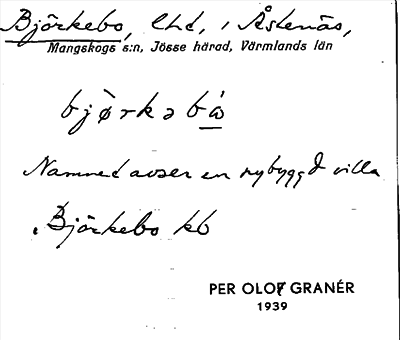 Björkebo, lht, i Åstenäs,
Mangskogs s:n, Jösse härad, Värmlands län
bjørkəbå̀
Namnet avser en nybyggd villa
Björkebo kb
PER OLOF GRANÉR
1939